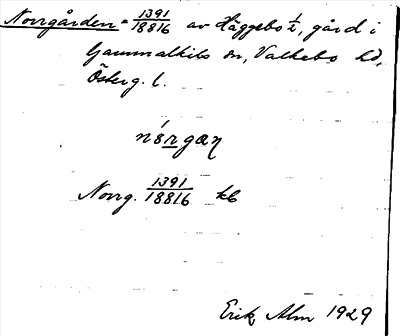 Norrgården = 1391/18816 av Häggebo 1/2, gård i
Gammalkils sn, Valkebo hd,
Österg. l.
nórgaɳ
Norrg. 1391/18816 kb
Erik Alm 1929